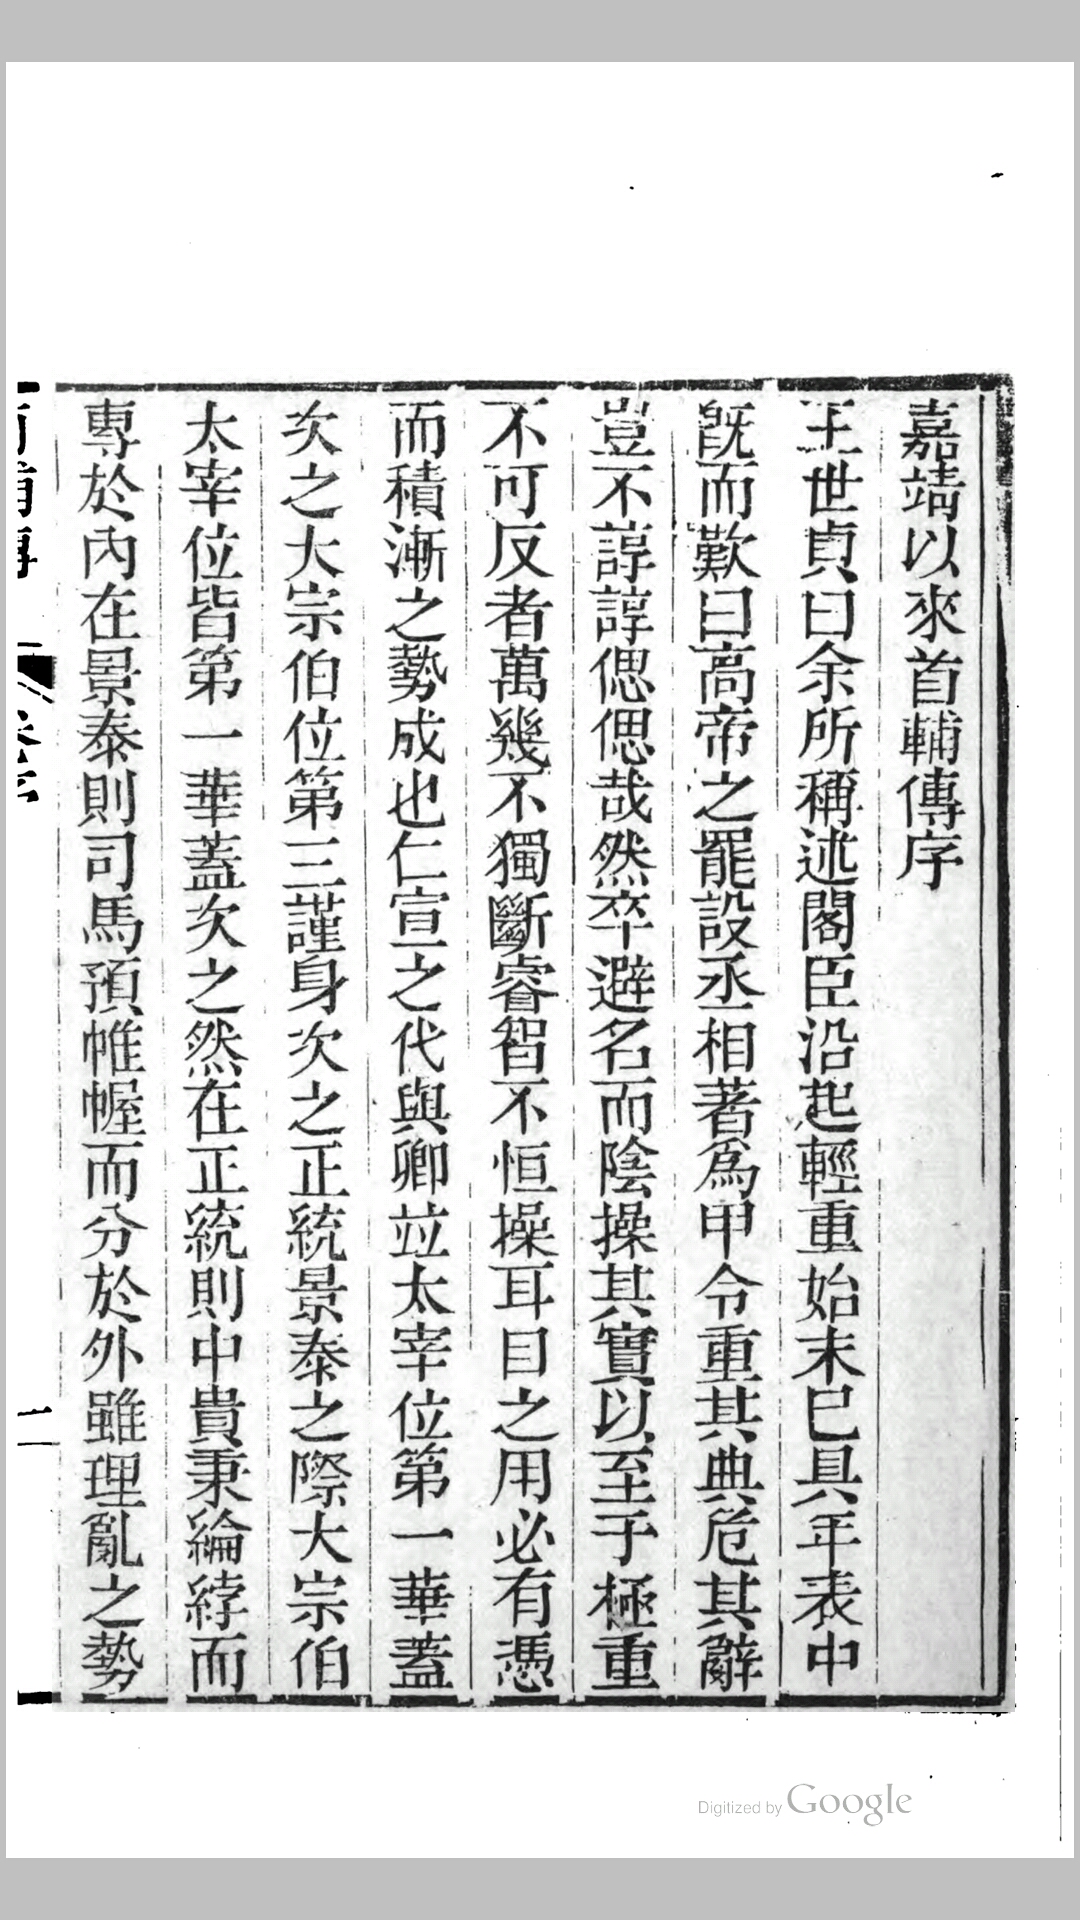 嘉靖以來首輔傳序
王世貞曰余所稱述閣臣沿起輕重始末已具年表中
旣而歎曰高帝之罷設丞相著爲甲令重其典危其辭
豈不諄諄偲偲哉然卒避名而陰操其實以至于極重
不可反者萬幾不獨斷睿智不恒操耳目之用必有憑
而積漸之勢成也仁宣之代與卿竝太宰位第一華蓋
次之大宗伯位第三謹身次之正統景泰之際大宗伯
太宰位皆第一華蓋次之然在正統則中貴秉綸綍而
專於內在景泰則司馬預帷幄而分於外雖理亂之勢
Digitized by Google